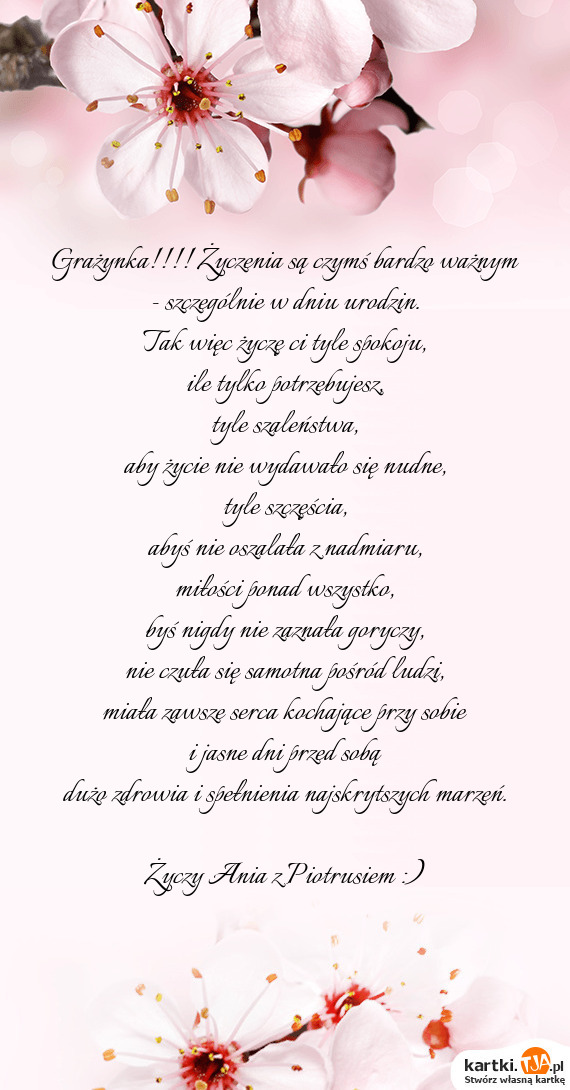 Grażynka!!!! Życzenia są czymś bardzo ważnym
- szczególnie w dniu urodzin.
Tak więc życzę ci tyle spokoju,
ile tylko potrzebujesz,
tyle szaleństwa,
aby życie nie wydawało się nudne,
tyle szczęścia,
abyś nie oszalała z nadmiaru,
miłości ponad wszystko,
byś nigdy nie zaznała goryczy,
nie czuła się samotna pośród ludzi,
miała zawsze serca kochające przy sobie
i jasne dni przed sobą
dużo zdrowia i spełnienia najskrytszych marzeń.
Życzy Ania z Piotrusiem :)
kartki.TJA.pl
Stwórz własną kartkę